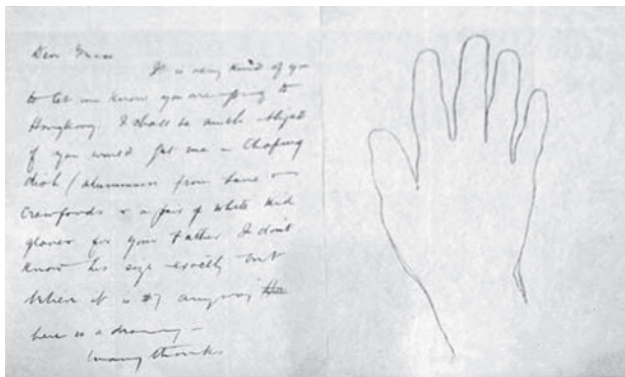 Dear
It is very kind of you
to let me know you are going to
Hongkong. I shall be much obliged
if you would get me a Chafing
dish (aluminum from Lane &
Crawfords & a pair of white kid
gloves for your Father. I don't
know his size exactly but
it is #7 anyway
here is a drawing —
many thanks